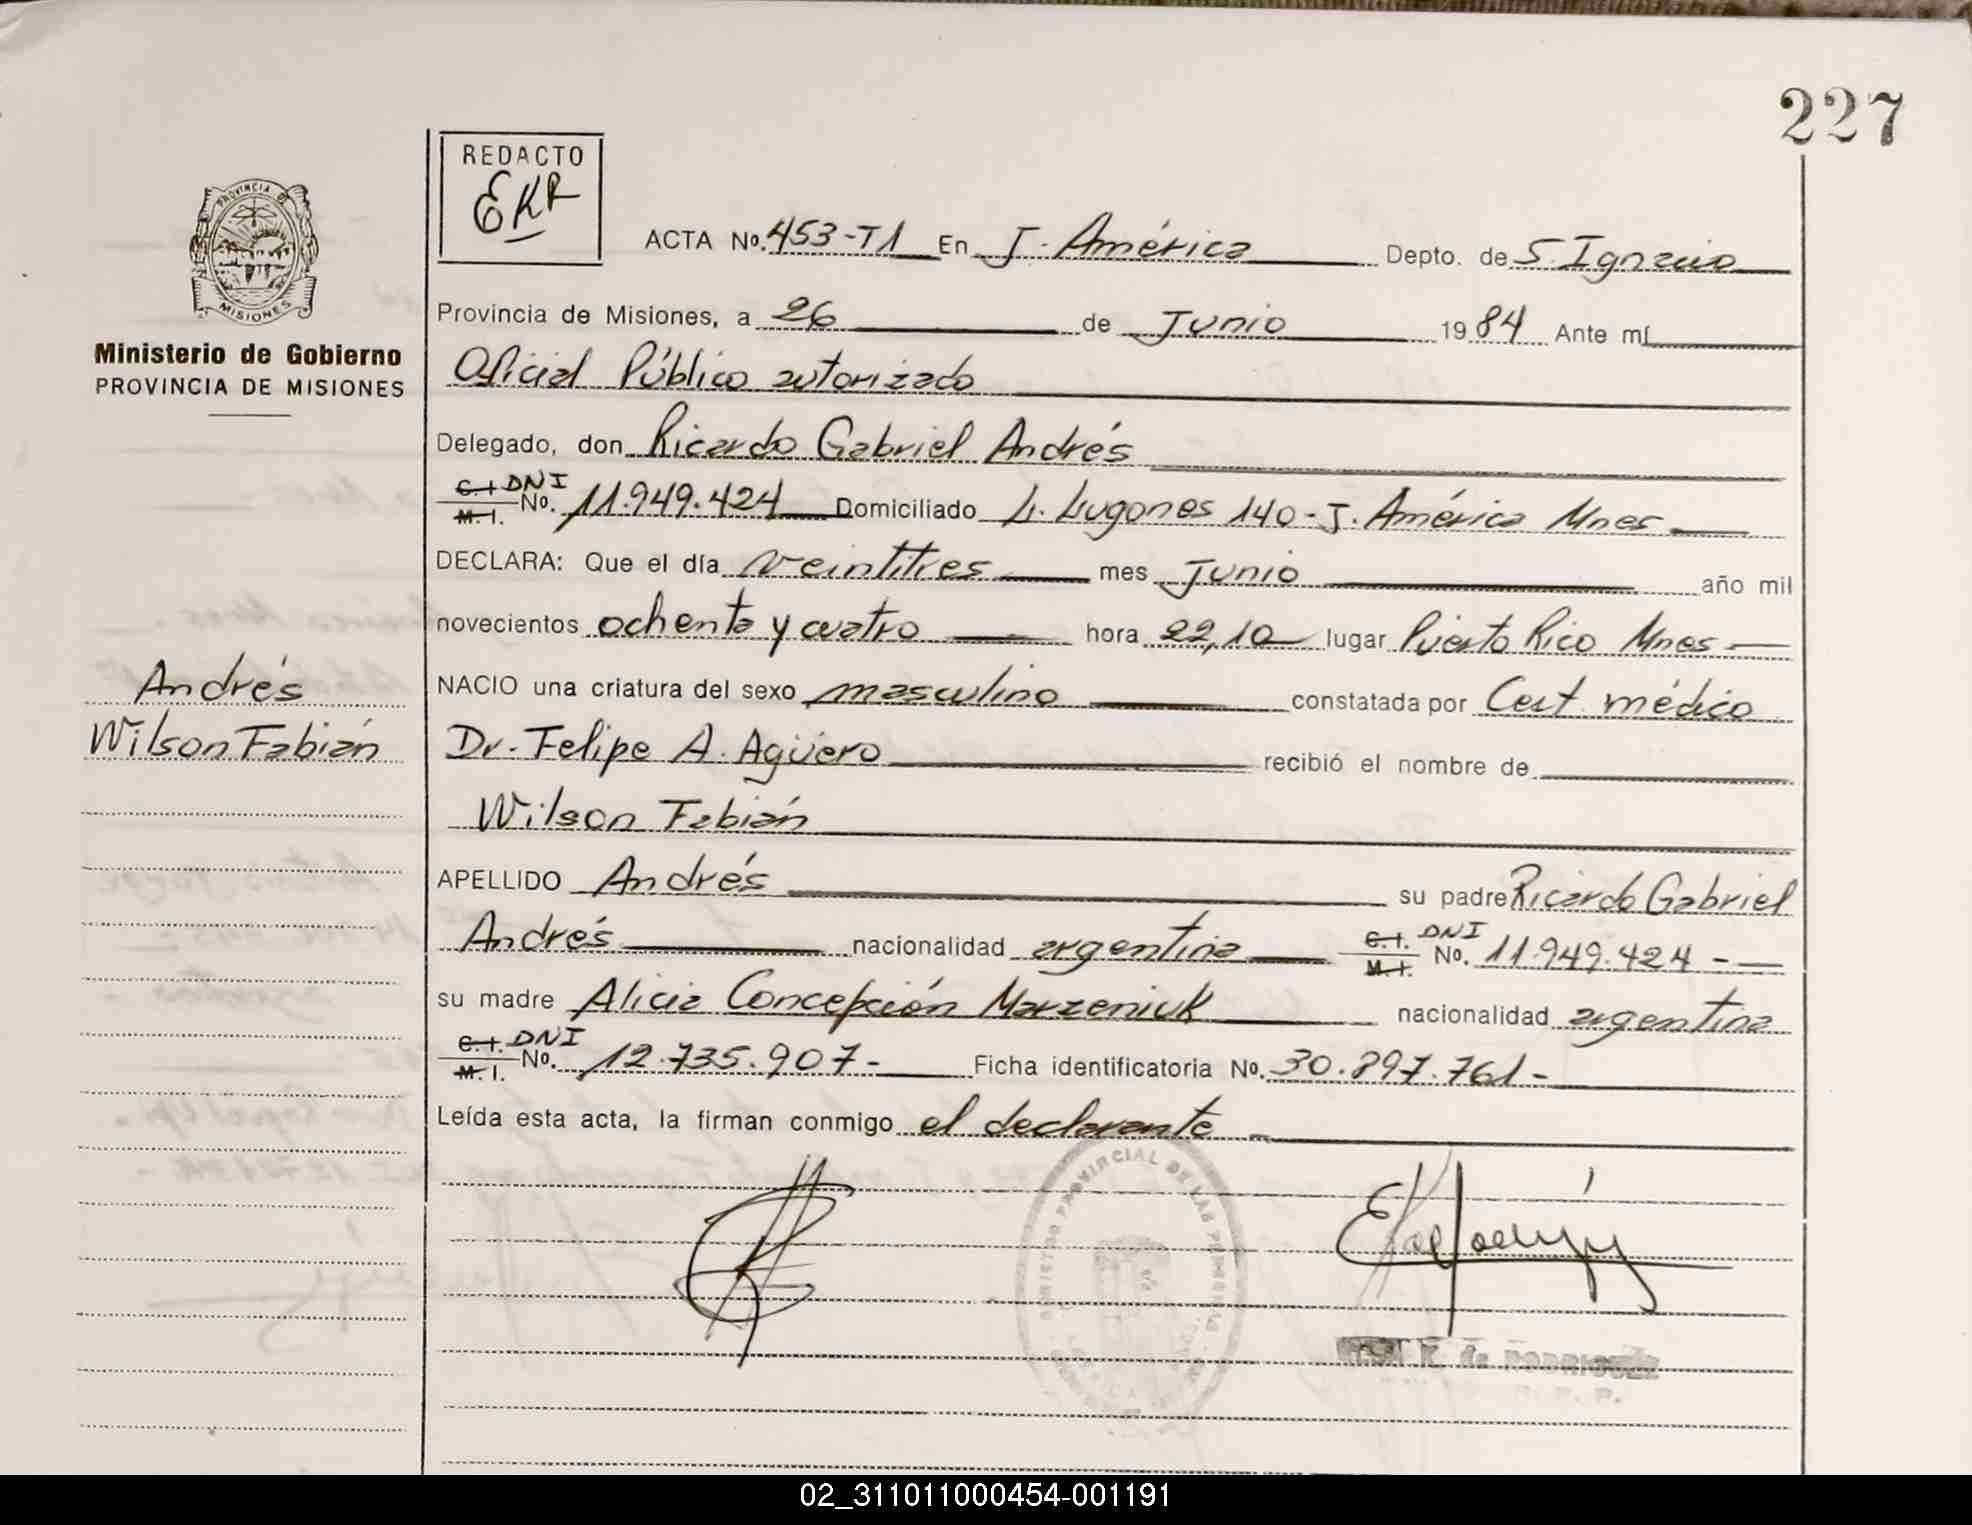 227
REDACTO
EKR
PROVINCIA DE
MISIONES
Ministerio de Gobierno
PROVINCIA DE MISIONES
ACTA No. 453-T1 En J. América Depto. de S. Ignacio
Provincia de Misiones, a 26 de Junio 1984 Ante mí
Oficial Público autorizado
Delegado, don Ricardo Gabriel Andrés
C.I. DNI
M.I. No. 11.949.424 Domiciliado L. Lugones 140 - J. América Mnes
DECLARA: Que el día veintitres mes Junio año mil
novecientos ochenta y cuatro hora 22,10 lugar Puerto Rico Mnes
Andrés
Wilson Fabián
NACIO una criatura del sexo masculino constatada por Cert. médico
Dr. Felipe A. Agüero recibió el nombre de
Wilson Fabián
APELLIDO Andrés su padre Ricardo Gabriel
Andrés nacionalidad argentina C.I. DNI
M.I. No. 11.949.424 -
su madre Alicia Concepción Marzeniuk nacionalidad argentina
C.I. DNI
M.I. No. 12.735.907- Ficha identificatoria No. 30.897.761-
Leída esta acta, la firman conmigo el declarante
PROVINCIAL DE LAS PERSONAS
K. de RODRIGUEZ
02_311011000454-001191